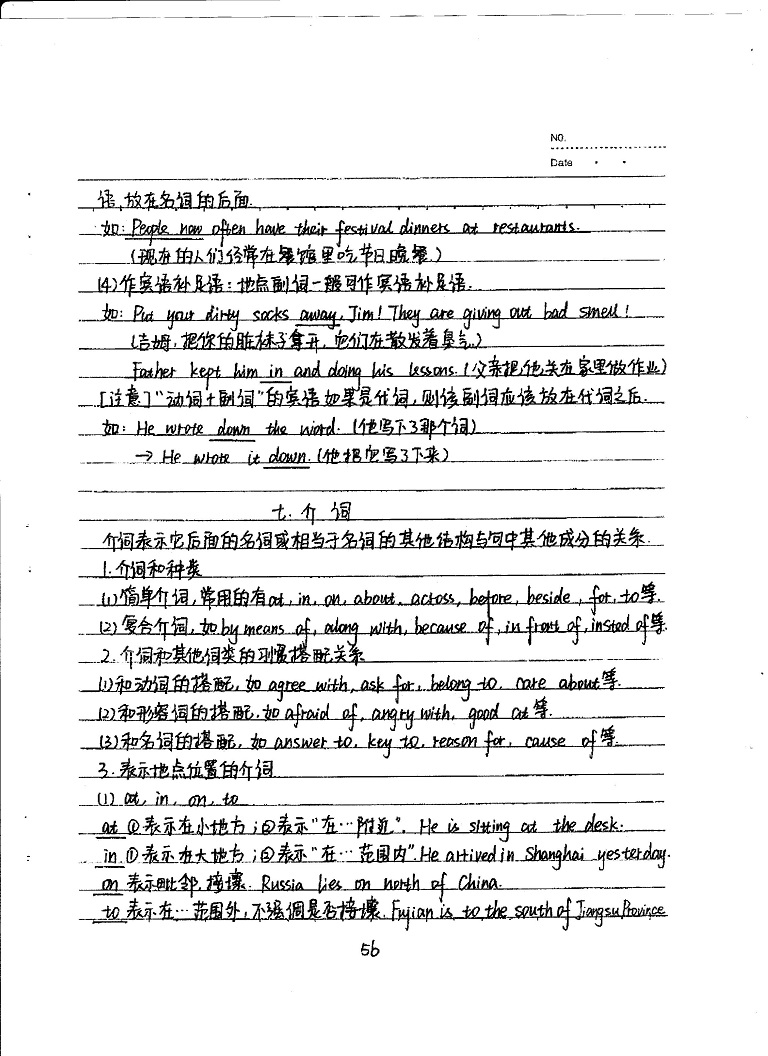 NO.
Date
语,放在名词的后面.
如: People now often have their festival dinners at restaurants.
(现在的人们经常在餐馆里吃节日晚餐.)
(4)作宾语补足语:地点副词一般可作宾语补足语.
如: Put your dirty socks away, Jim! They are giving out bad smell!
(吉姆,把你的脏袜子拿开,它们在散发着臭气.)
Father kept him in and doing his lessons. (父亲把他关在家里做作业)
[注意]“动词+副词”的宾语如果是代词,则该副词应该放在代词之后.
如: He wrote down the word. (他写下了那个词)
→ He wrote it down. (他把它写了下来)
七.介词
介词表示它后面的名词或相当于名词的其他结构与句中其他成分的关系.
1.介词和种类
(1)简单介词,常用的有at, in, on, about, across, before, beside, for, to等.
(2)复合介词,如by means of, along with, because of, in front of, insted of等.
2.介词和其他词类的习惯搭配关系
(1)和动词的搭配,如agree with, ask for, belong to, care about等.
(2)和形容词的搭配,如afraid of, angry with, good at等.
(3)和名词的搭配,如answer to, key to, reason for, cause of等.
3.表示地点位置的介词
(1) at, in, on, to
at ①表示在小地方;②表示“在…附近”. He is sitting at the desk.
in ①表示在大地方;②表示“在…范围内”. He arrived in Shanghai yesterday.
on 表示毗邻,接壤. Russia lies on north of China.
to 表示在…范围外,不强调是否接壤. Fujian is to the south of Jiangsu Province
56